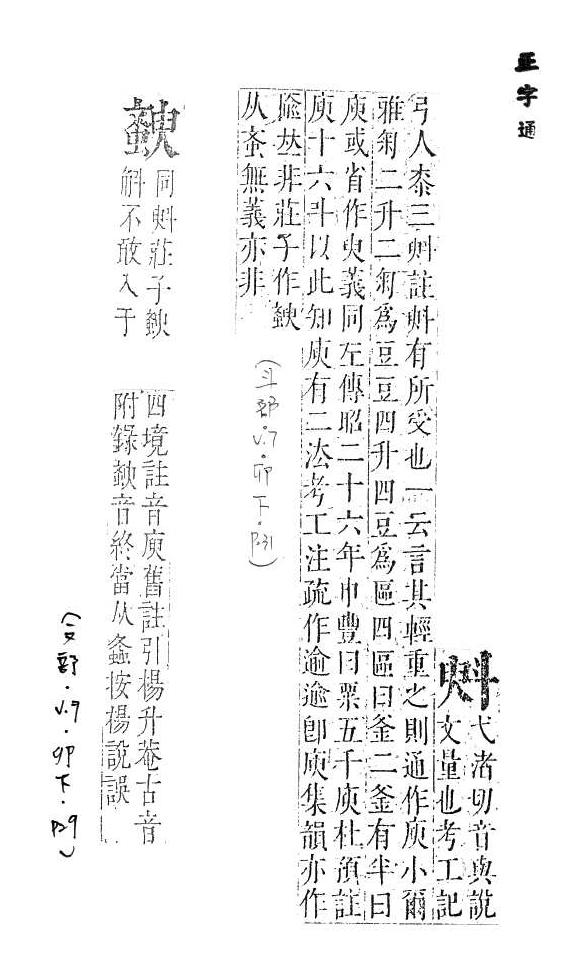 正字通
斞
弋渚切音與說
文量也考工記
弓人桼三斞註斞有所受也一云言其輕重之則通作庾小爾
雅匊二升二匊為豆豆四升四豆為區四區曰釜二釜有半曰
庾或省作臾義同左傳昭二十六年申豐曰粟五千庾杜預註
庾十六斗以此知庾有二法考工注疏作逾逾卽庾集韻亦作
𠀤非莊子作
从無義亦非
(斗部・v.7・卯下・P.31)
同斞莊子
斛不敢入于
四境註音庾舊註引楊升菴古音
附錄音終當从螽按楊說誤
(文部・v.7・卯下・P.29)